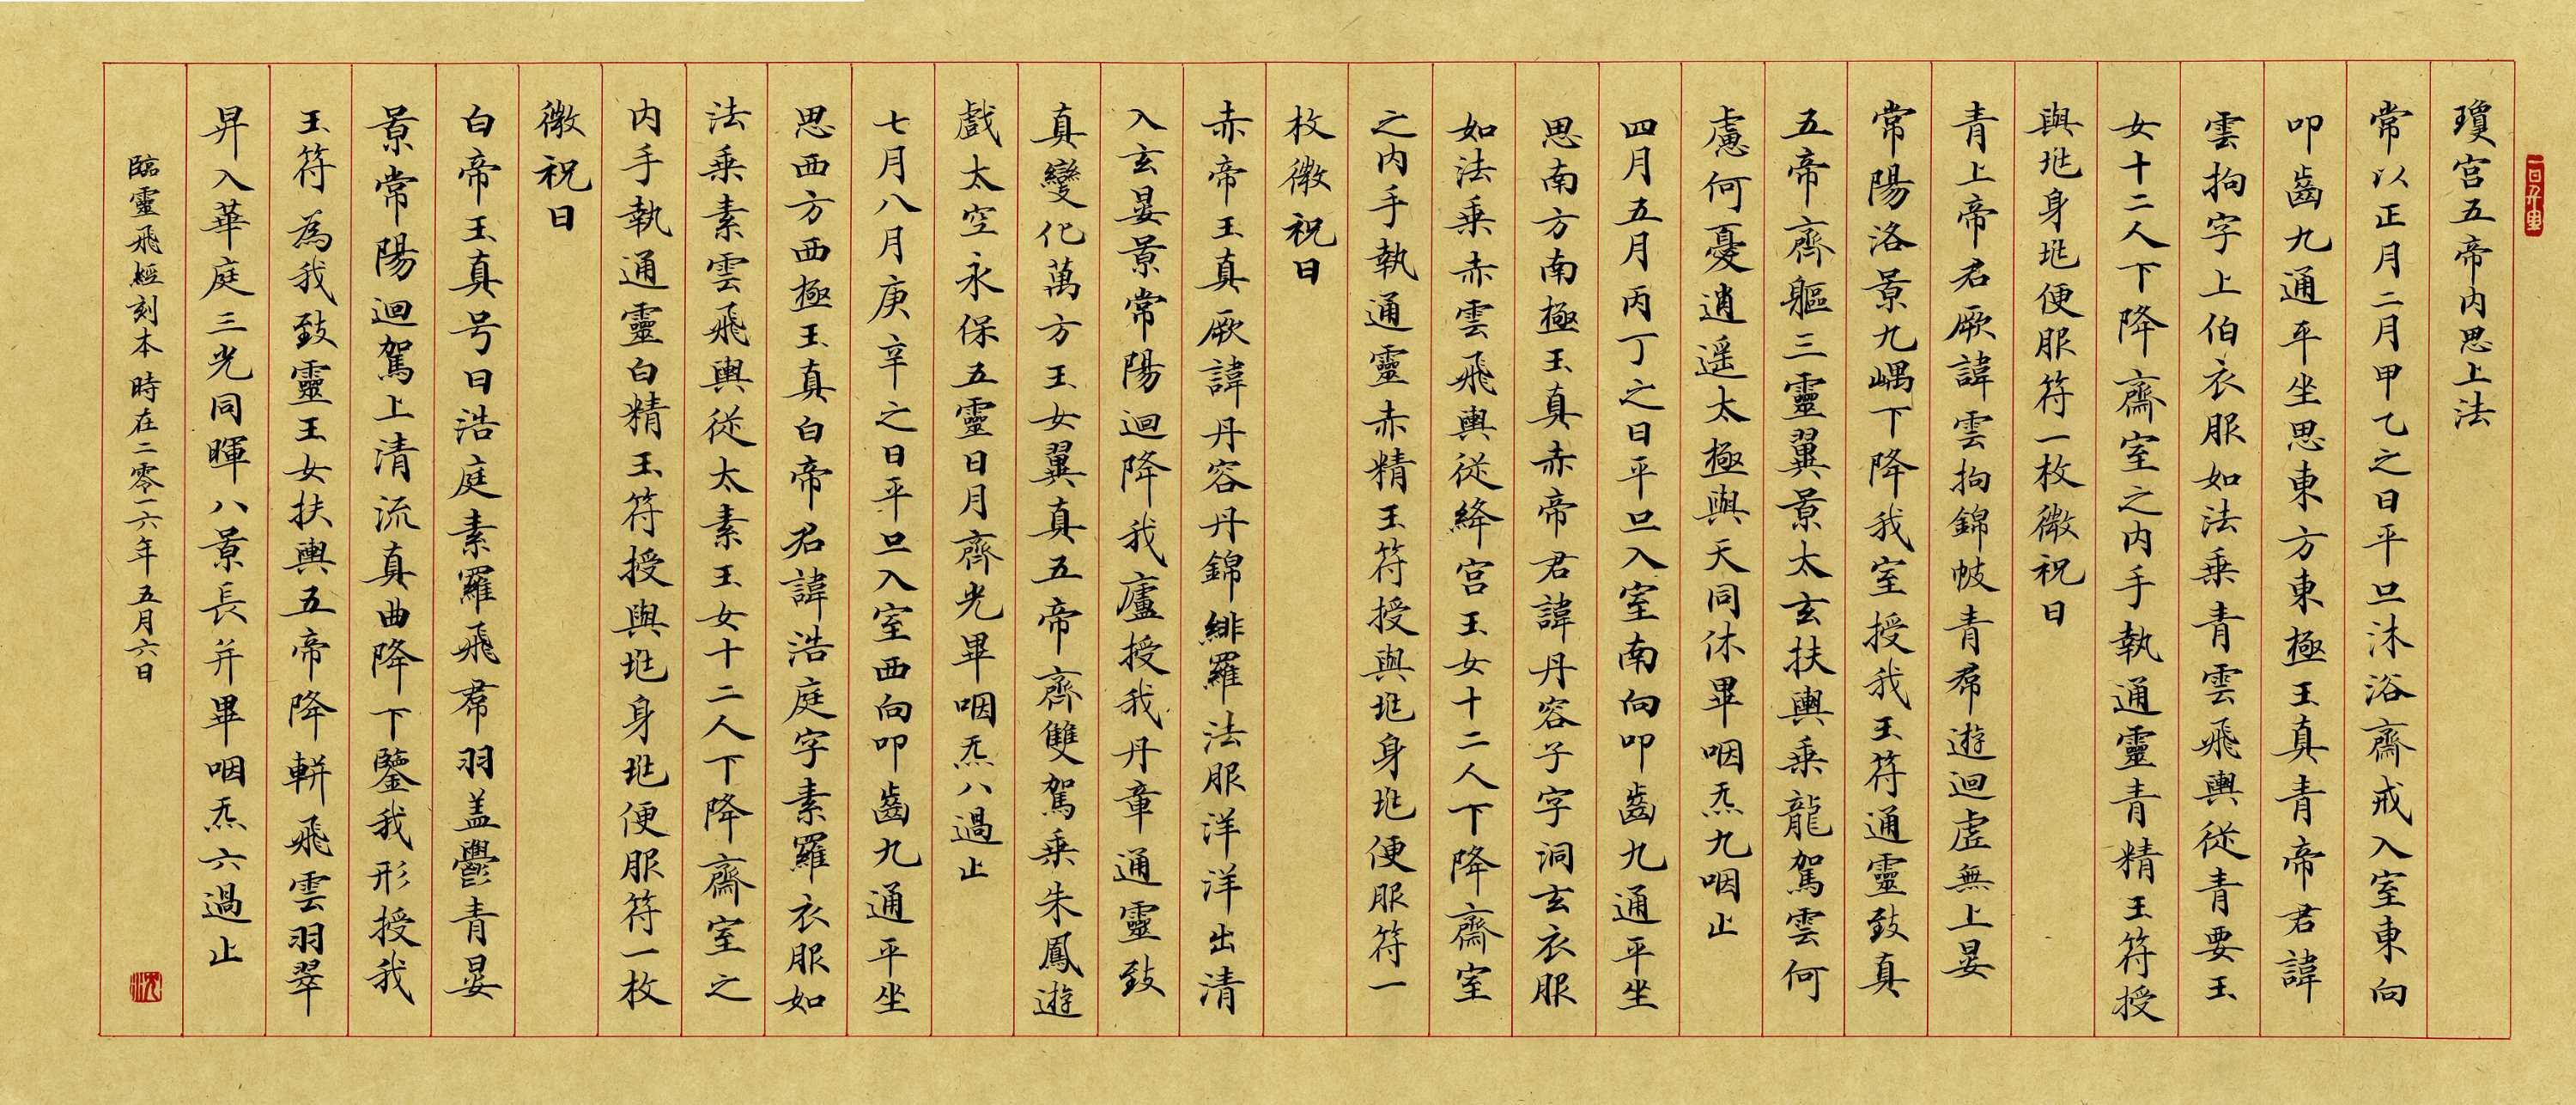 瓊宫五帝内思上法
常以正月二月甲乙之日平旦沐浴齋戒入室東向
叩齒九通平坐思東方東極玉真青帝君諱
雲拘字上伯衣服如法乗青雲飛輿從青要玉
女十二人下降齋室之内手執通靈青精玉符授
與兆身兆便服符一枚微祝曰
青上帝君厥諱雲拘錦帔青帬遊迴虚無上晏
常陽洛景九嵎下降我室授我玉符通靈致真
五帝齊軀三靈翼景太玄扶輿乗龍駕雲何
慮何憂逍遥太極與天同休畢咽炁九咽止
四月五月丙丁之日平旦入室南向叩齒九通平坐
思南方南極玉真赤帝君諱丹容子字洞玄衣服
如法乗赤雲飛輿從絳宫玉女十二人下降齋室
之内手執通靈赤精玉符授與兆身兆便服符一
枚微祝曰
赤帝玉真厥諱丹容丹錦緋羅法服洋洋出清
入玄晏景常陽迴降我廬授我丹章通靈致
真變化萬方玉女翼真五帝齊雙駕乗朱鳳遊
戲太空永保五靈日月齊光畢咽炁八過止
七月八月庚辛之日平旦入室西向叩齒九通平坐
思西方西極玉真白帝君諱浩庭字素羅衣服如
法乗素雲飛輿從太素玉女十二人下降齋室之
内手執通靈白精玉符授與兆身兆便服符一枚
微祝曰
白帝玉真号曰浩庭素羅飛帬羽盖鬱青晏
景常陽迴駕上清流真曲降下鑒我形授我
玉符為我致靈玉女扶輿五帝降軿飛雲羽翠
昇入華庭三光同暉八景長并畢咽炁六過止
臨靈飛經刻本 時在二零一六年五月六日